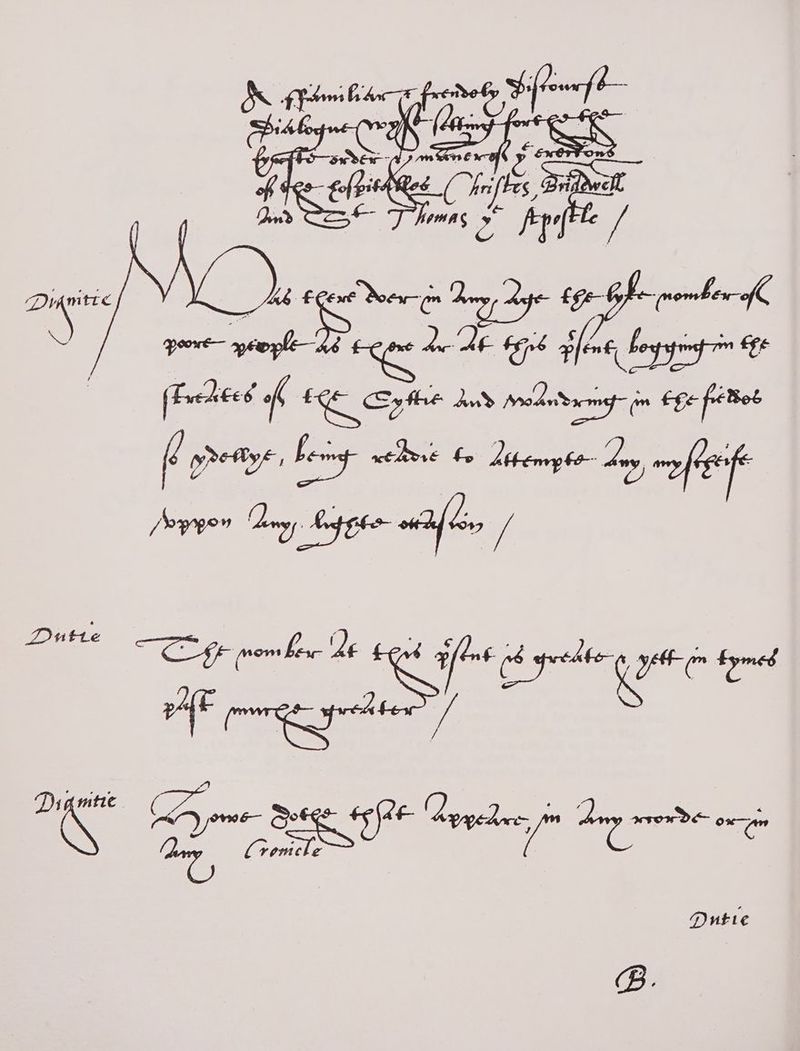 A ffamiliar & frendely Discourse
Dialogue wyse setting forthe the
fyrste order & maner of ye erections
of the hospitalles Christes, Bridwell
And St Thomas ye Apostle /
Dignitie / Was there ever in any, Age the lyke nomber of
poore people as there ar At this psent, begging in the
streates of the Cyttie and wandring in the fieldes
so ydellye, being readie to Attempte any, myscheife
vppon any, lighte occasion /
Dutie The nomber at this psent is greate & yett in tymes
past muche greater /
Dignitie Howe dothe that Appeare, in any recorde or in
any Cronicle
Dutie
B.